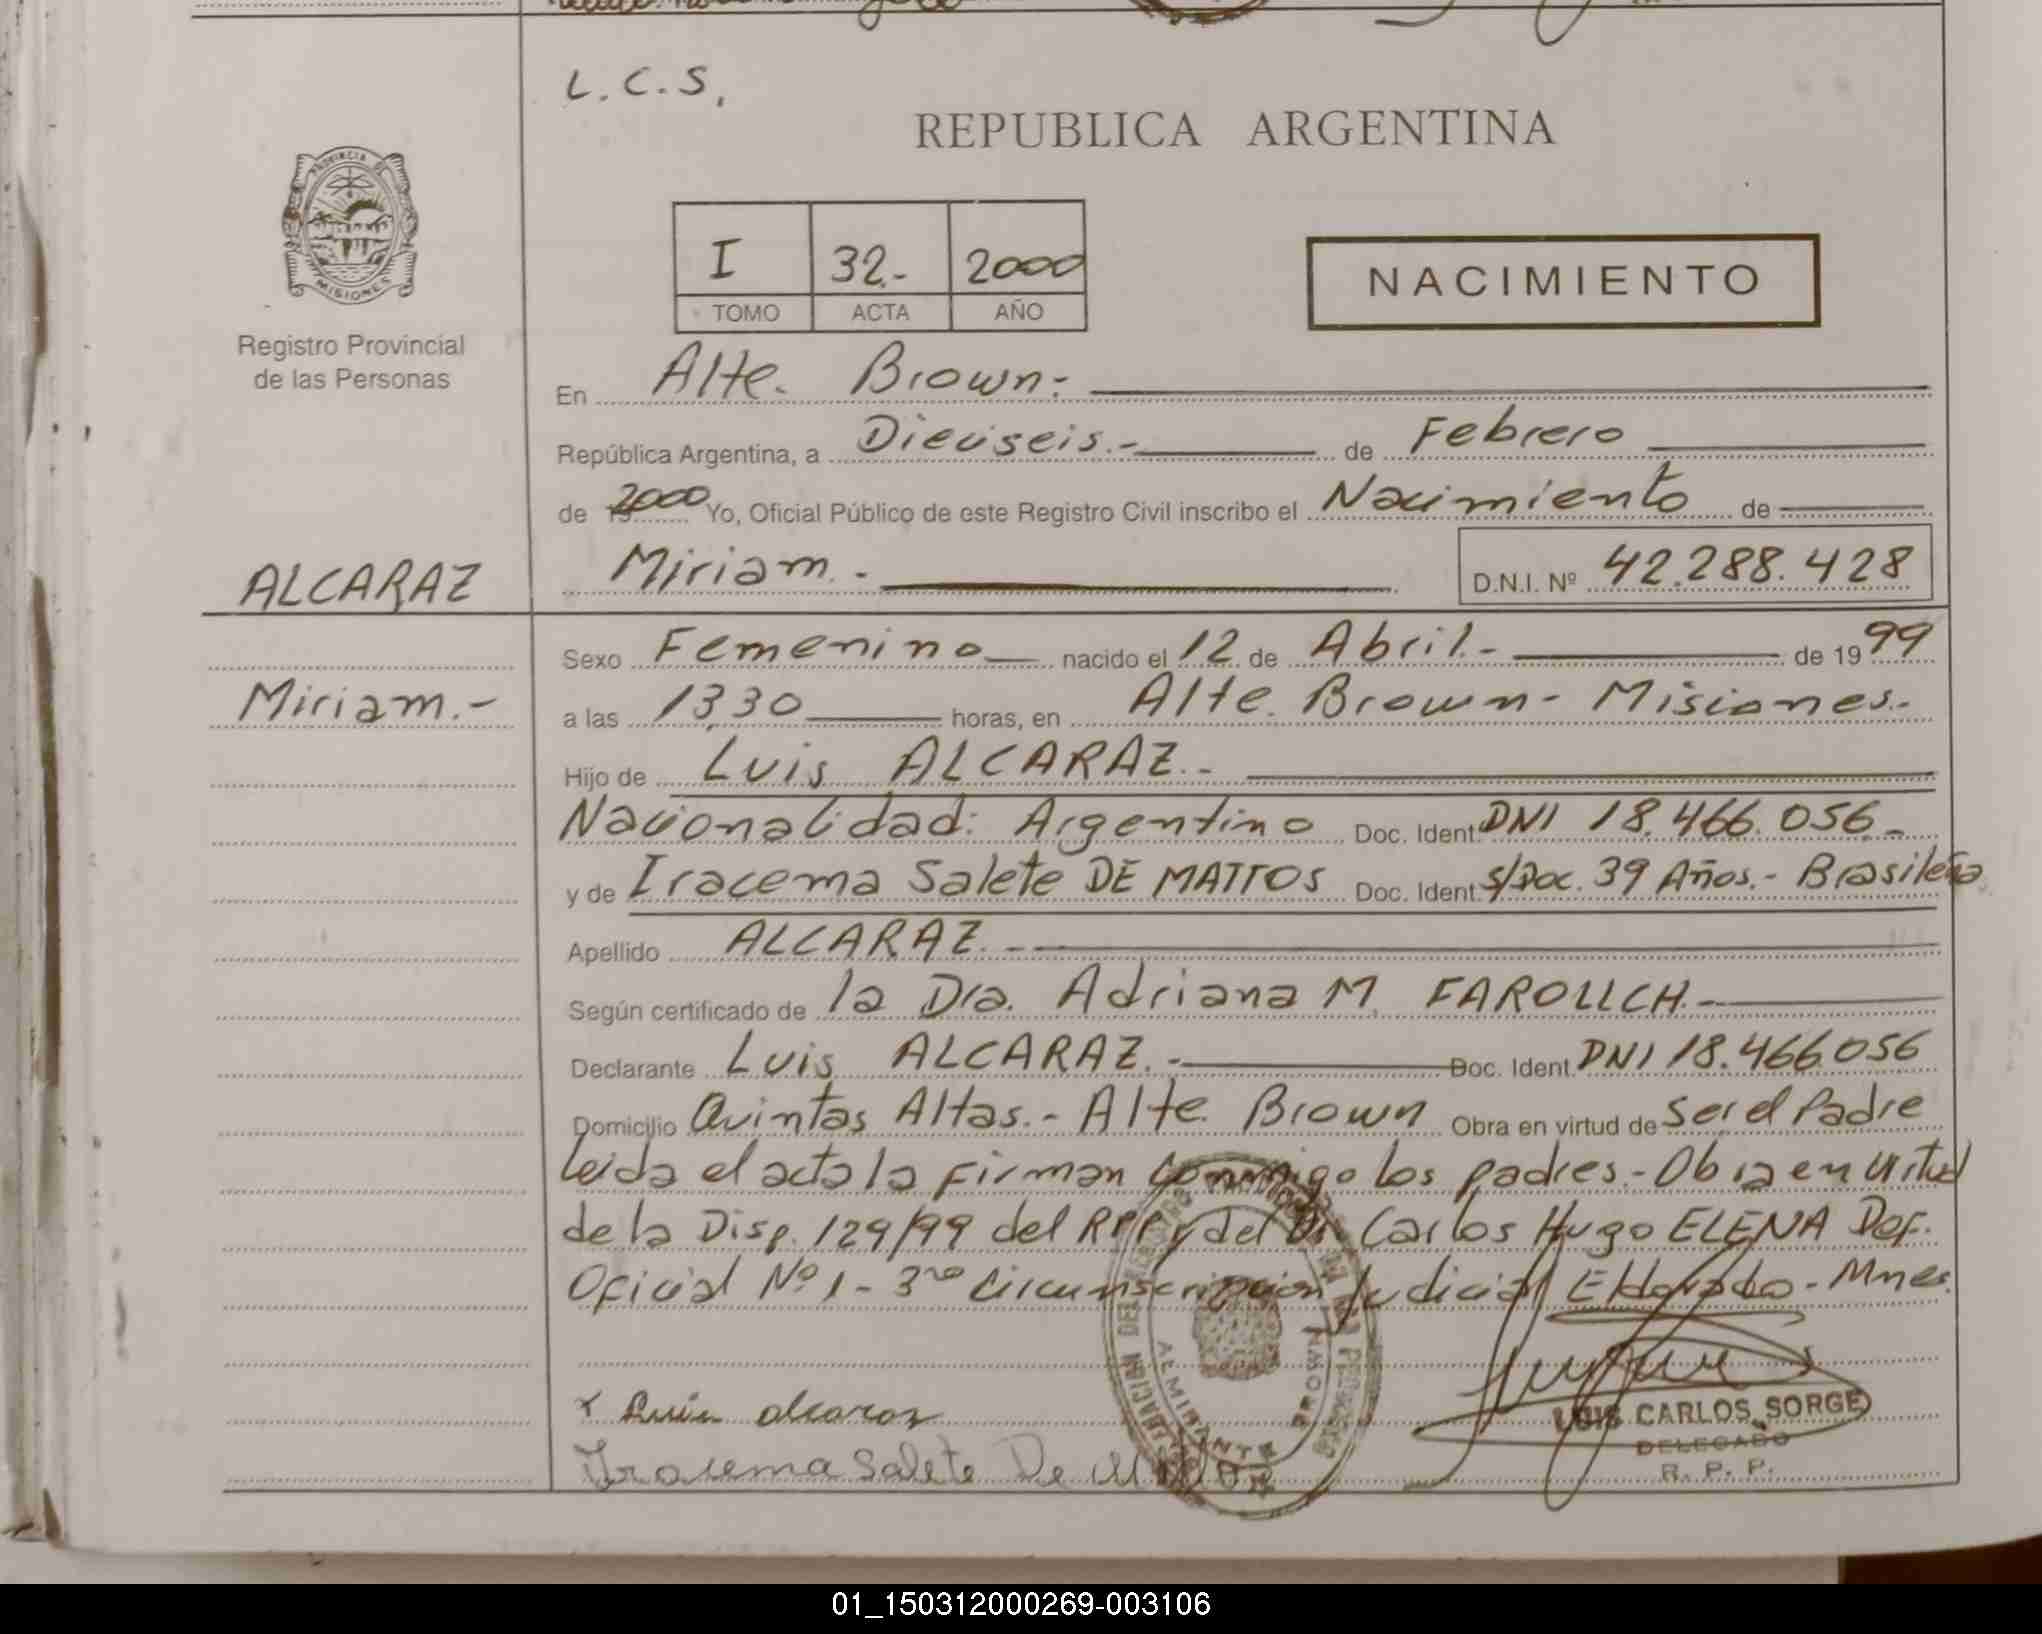 L.C.S.
REPUBLICA ARGENTINA
PROVINCIA DE MISIONES
I 32.- 2000
TOMO ACTA AÑO
NACIMIENTO
Registro Provincial
de las Personas
En Alte. Brown.-
República Argentina, a Dieciseis.- de Febrero
de 2000 Yo, Oficial Público de este Registro Civil inscribo el Nacimiento de
ALCARAZ
Miriam.- D.N.I. Nº 42.288.428
Sexo Femenino nacido el 12 de Abril.- de 1999
Miriam.-
a las 13,30 horas, en Alte. Brown - Misiones.-
Hijo de Luis ALCARAZ.-
Nacionalidad: Argentino Doc. Ident. DNI 18.466.056.-
y de Iracema Salete DE MATTOS Doc. Ident. s/Doc. 39 Años.- Brasileña
Apellido ALCARAZ.-
Según certificado de la Dra. Adriana M. FAROLLCH.-
Declarante Luis ALCARAZ.- Doc. Ident. DNI 18.466.056
Domicilio Quintas Altas.- Alte. Brown Obra en virtud de Ser el Padre
Leida el acta la firman conmigo los padres.- Obra en virtud
de la Disp. 129/99 del RPP y del Dr. Carlos Hugo ELENA Def.
Oficial Nº 1 - 3ra Circunscripcion Judicial Eldorado - Mnes.
x Luis alcaraz
Iracema Salete De
ALMIRANTE BROWN
LUIS CARLOS SORGE
DELEGADO
R. P. P.
01_150312000269-003106